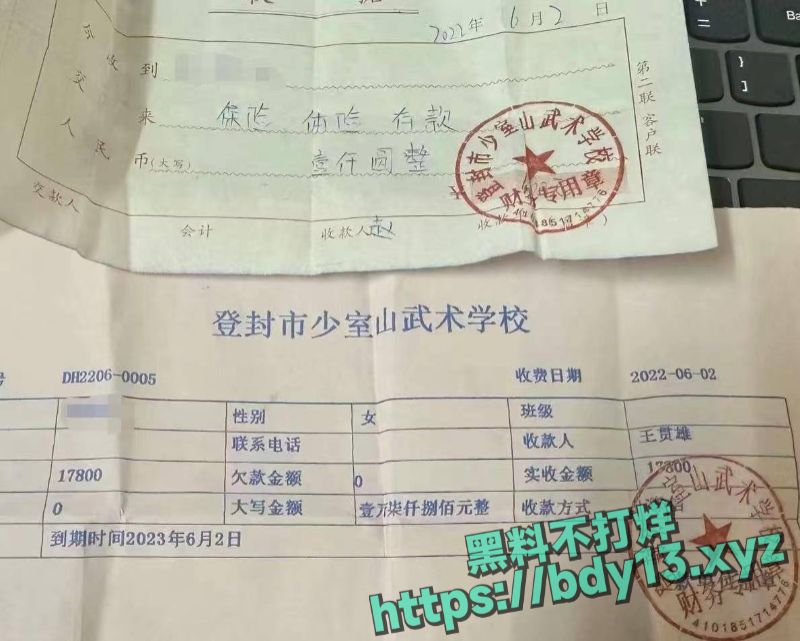 2022年 6月2日
今收到
交来 保险 体险 存款
人民币(大写) 壹仟圆整
第二联 客户联
交款人
会计 收款人 赵
登封市少室山武术学校
财务专用章
登封市少室山武术学校
号 DH2206-0005 收费日期 2022-06-02
性别 女 班级
联系电话 收款人 王贯雄
17800 欠款金额 0 实收金额 17800
0 大写金额 壹万柒仟捌佰元整 收款方式
到期时间2023年6月2日
室山武术学校
财务专用章
4101851714776
黑料不打烊
https://bdy13.xyz